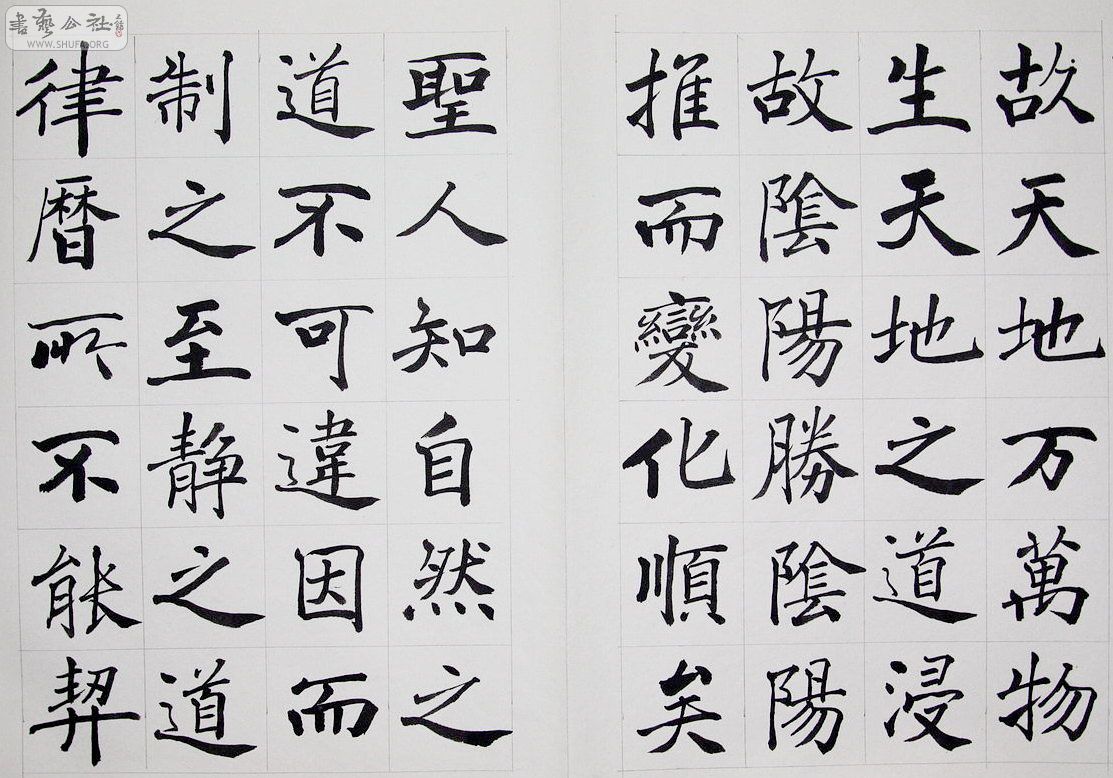 故天地万萬物
生天地之道浸
故陰陽勝陰陽
推而變化順矣
聖人知自然之
道不可違因而
制之至静之道
律暦所不能契
書藝公社
WWW.SHUFA.ORG